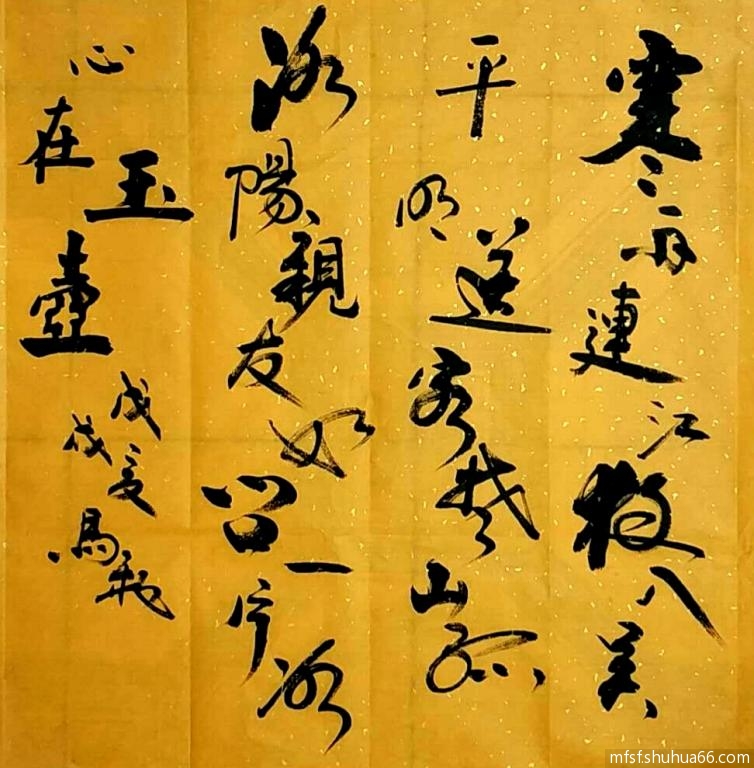 寒雨連江夜入吴
平明送客楚山孤
洛陽親友如问一片冰
心在玉壺
戊戌夏
馬飛
mfsf.shuhua66.com